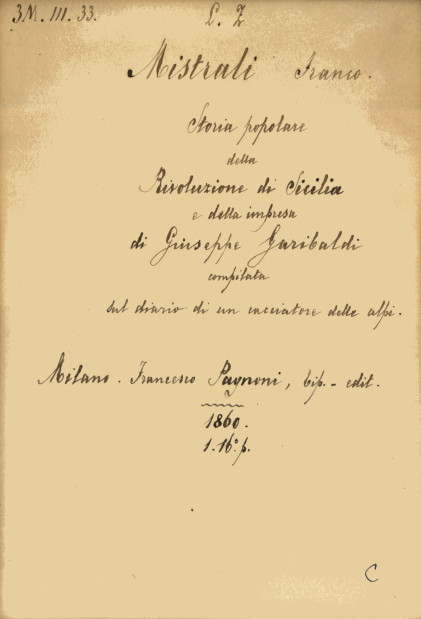 3M. III. 33.
L. Z
Mistrali Franco.
Storia popolare
della
Rivoluzione di Sicilia
e della impresa
di Giuseppe Garibaldi
compilata
sul diario di un cacciatore delle alpi.
Milano. Francesco Pagnoni, tip. - edit.
1860.
1. 16º. p.
C